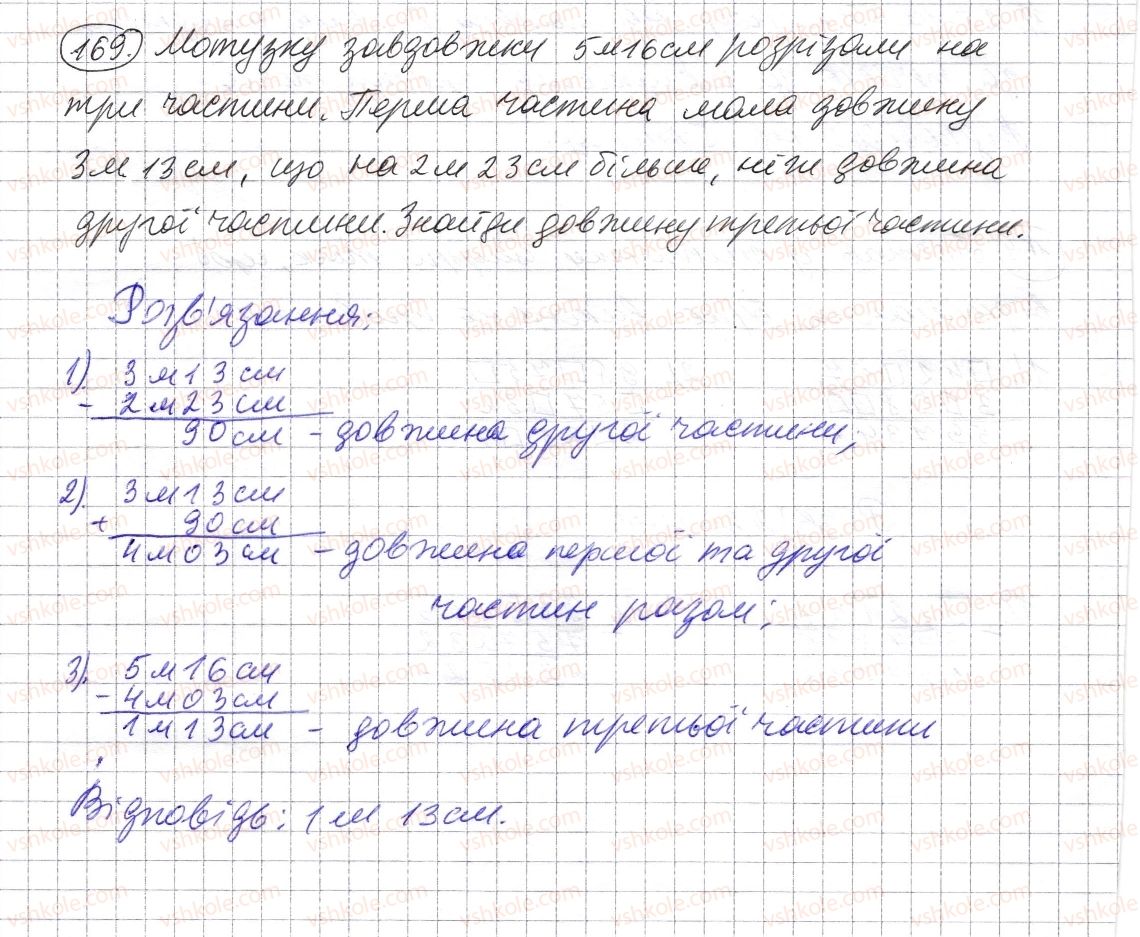 169. Мотузку завдовжки 5м16см розрізали на
три частини. Перша частина мала довжину
3м 13см, що на 2м 23см більше, ніж довжина
другої частини. Знайди довжину третьої частини.
Розв'язання:
1). 3м13см
- 2м23см
90см - довжина другої частини;
2). 3м13см
+ 90см
4м03см - довжина першої та другої
частин разом;
3). 5м16см
- 4м03см
1м13см - довжина третьої частини
Відповідь: 1м 13см.